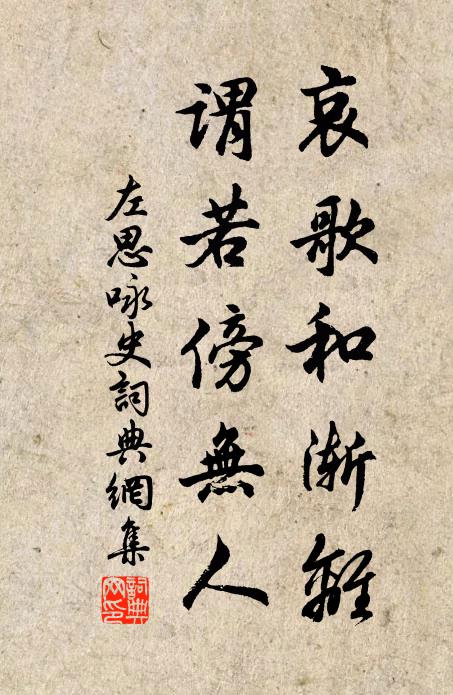 哀歌和漸離
謂若傍無人
左思咏史詞典網集
詞典网印